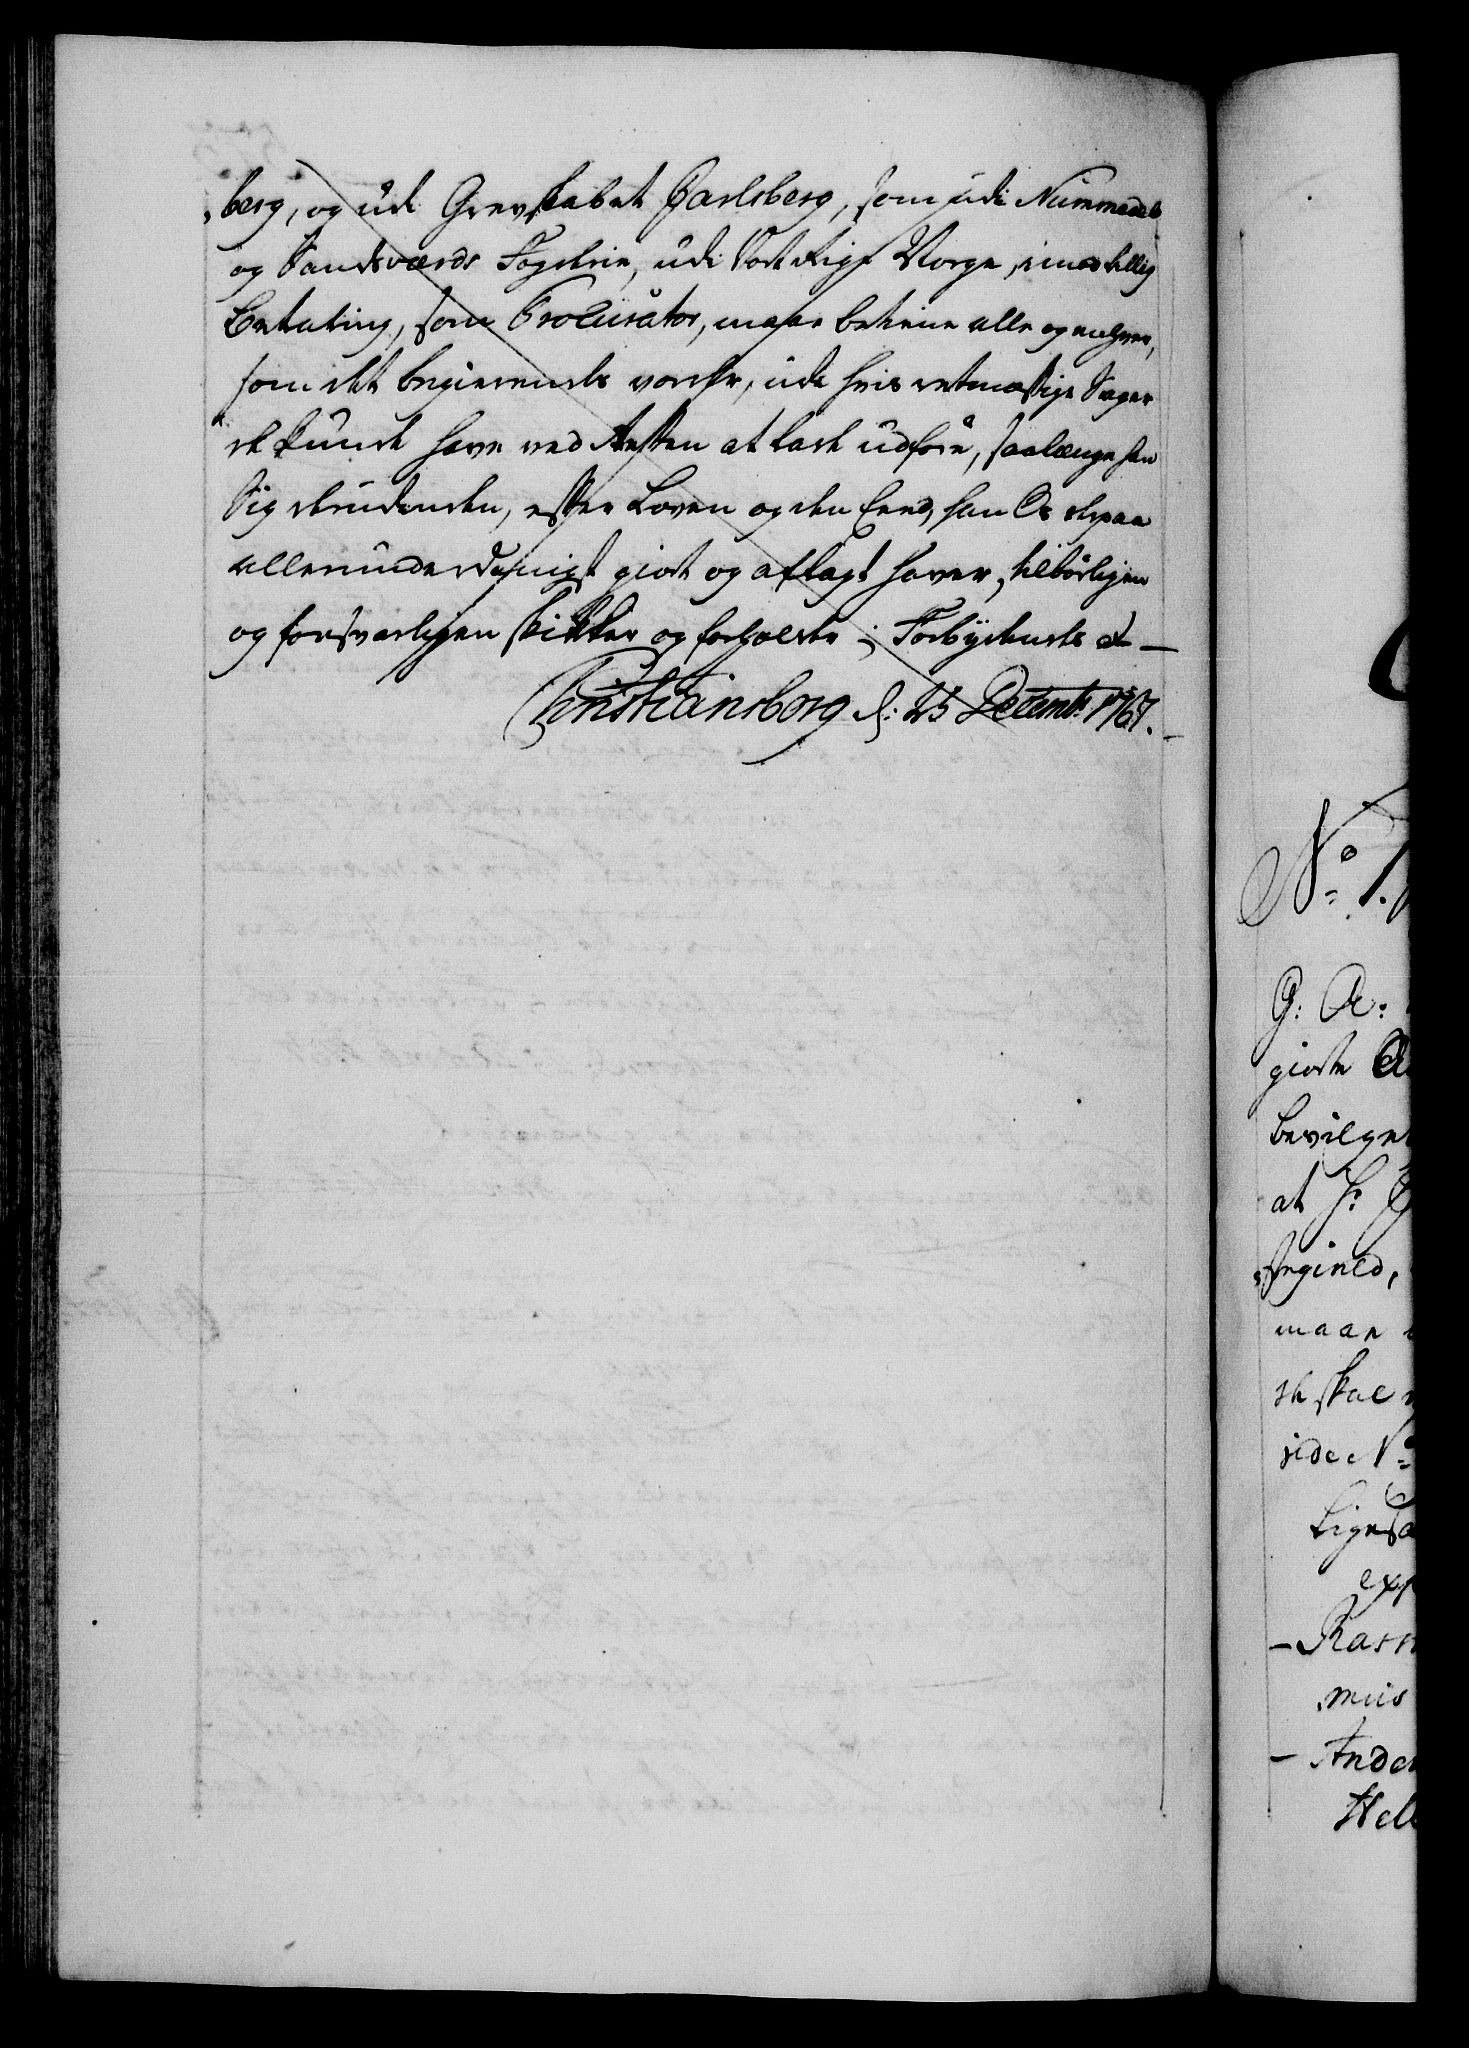 berg, og udi Grevskabet Jarlsberg, som udi Nummedals
og Sandsværds Fogderie, udi Vort Rige Norge, imod billig
Betaling, som Procurator, maae betiene alle og enhver,
som det begierendes vorder, udi hvis retmæssige Sager
de kunde have ved Retten at lade udføre, saalænge han
Sig derudinden, efter Loven og den Eed, han Os derpaa
allerunderdanigst giort og aflagt haver, tilbørligen
og forsvarligen skikker og forholder; Forbydendes et
Christiansborg d: 23 Decemb: 1767.
No 1.
G: A:
giorte
bevilget
at Hr
Regined,
maae
de skal
vide No
Ligesaa
exp
- Rasm
mus
- Ander
Hell